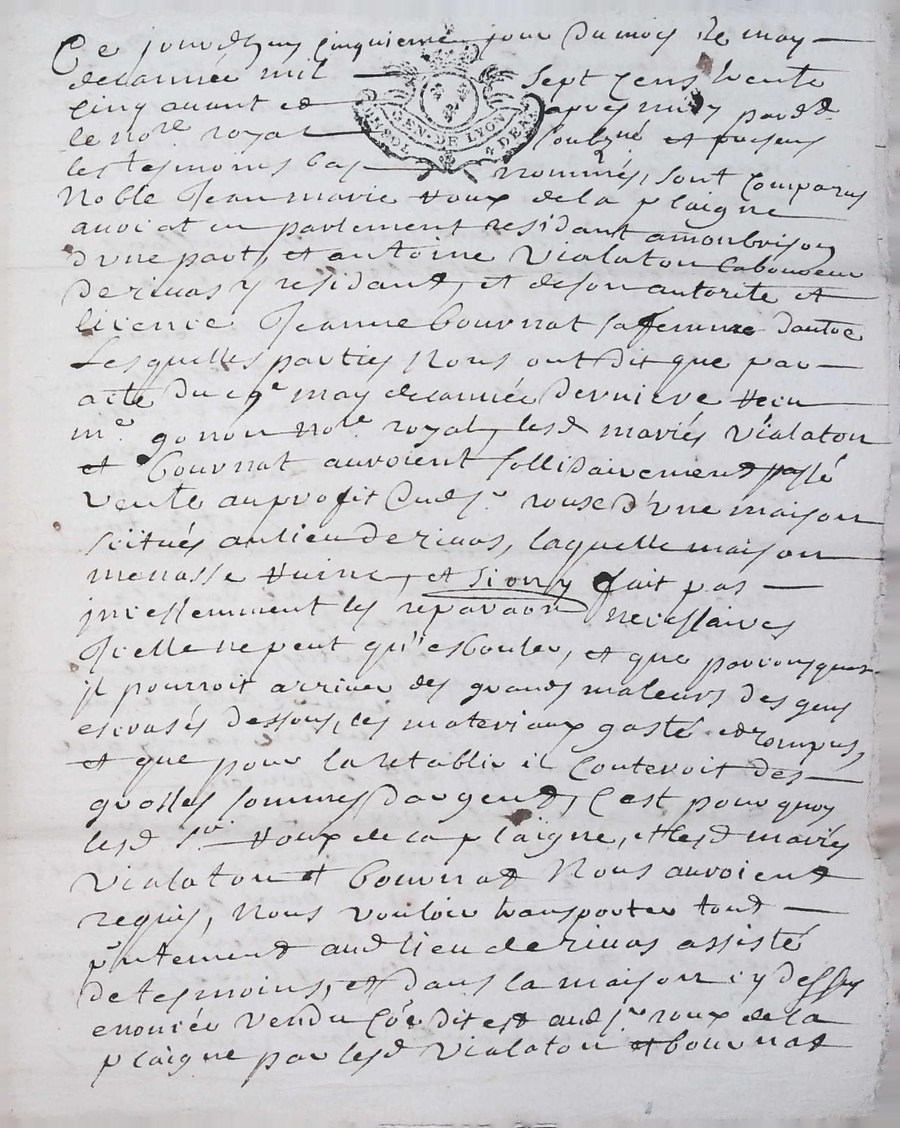 Ce jourdhuy cinquieme jour du mois de may
de lannée mil sept cens trente
cinq avant et apres midy pard.
le no.re royal soubzné et presens
les tesmoins bas nommés, sont comparus
Noble Jean marie roux de la plaigne
avocat en parlement residant a monbrison
dune part, et antoine Vialaton laboureur
de rivas y résidant, et de son autorité et
licence Jeanne bournat sa femme dautre
Lesquelles parties Nous ont dit que par
acte du 29.e may de lannée derniere receu
m.e gonon no.re royal, lesd mariés Vialaton
et bournat auroient sollidairement passé
vente au profit dud s.r roux d'une maison
scitués au lieu de rivas, laquelle maison
menasse ruine, et sion y fait pas
incessemment les reparaon necessaires
Icelle ne peut qu'esbouler, et que par consequent
il pourroit arriver des grands maleurs des gens
escrasés dessous, les materiaux gasté et rompus,
et que pour la retablir il couteroit des
grosses sommes dargend, C'est pourquoy
lesd S.r roux de la plaigne, et lesd mariés
Vialaton et bournat Nous auroient
requis, Nous vouloir transporter tout
pntement aud lieu de rivas assisté
de tesmoins, et dans la maison cy dessus
enoncée vendu Co'e dit est aud s.r roux de la
plaigne par lesd Vialaton et bournat
GEN. DE LYON
4 DEN